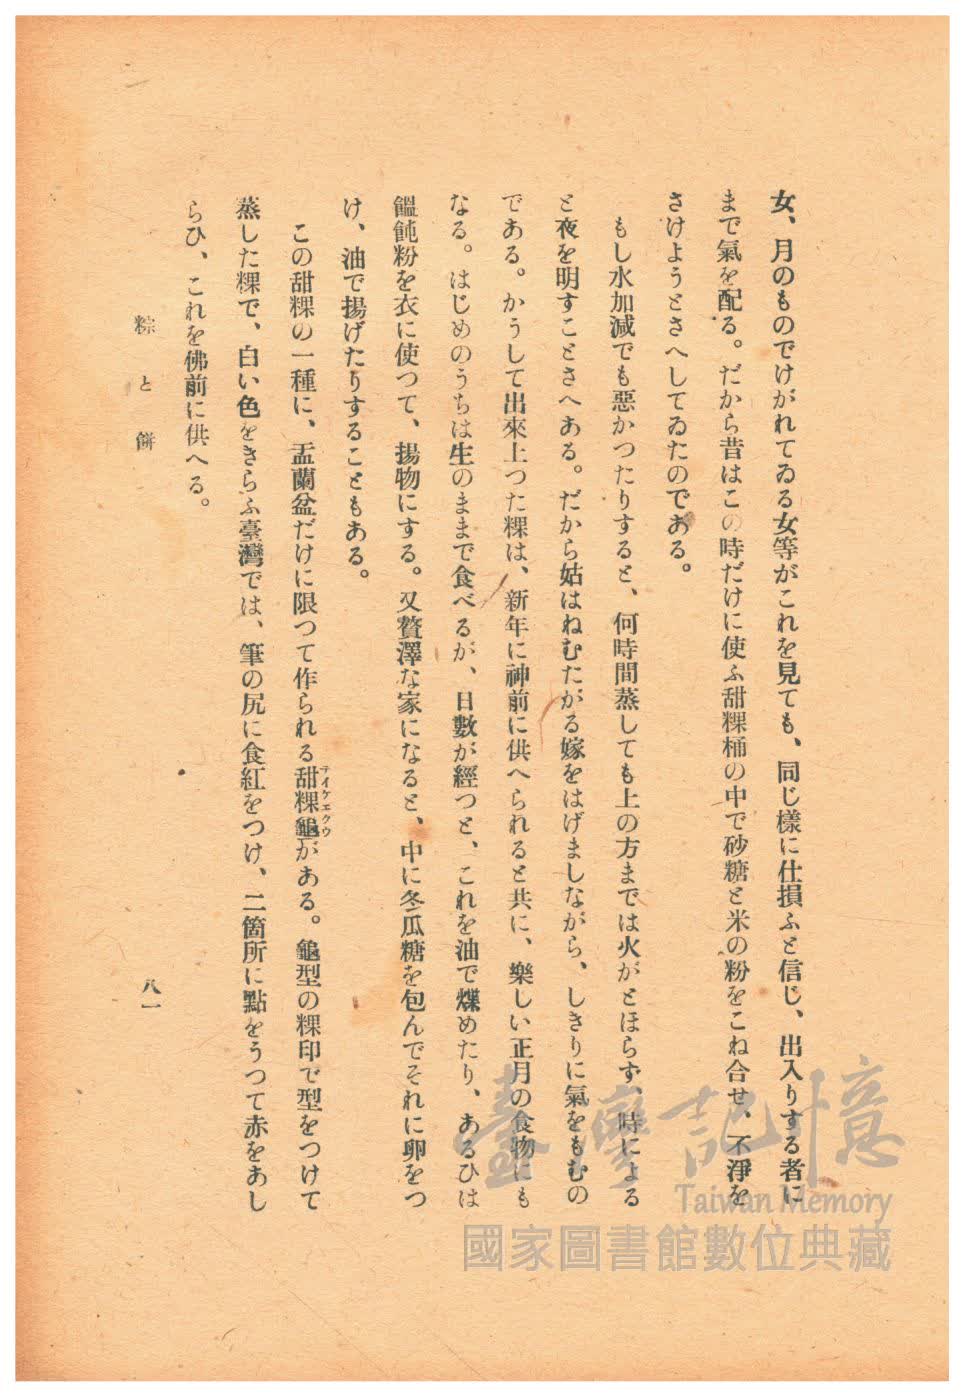 女、月のものでけがれてゐる女等がこれを見ても、同じ樣に仕損ふと信じ、出入りする者に
まで氣を配る。だから昔はこの時だけに使ふ甜粿桶の中で砂糖と米の粉をこね合せ、不淨を
さけようとさへしてゐたのである。
もし水加減でも惡かつたりすると、何時間蒸しても上の方までは火がとほらず、時による
と夜を明すことさへある。だから姑はねむたがる嫁をはげましながら、しきりに氣をもむの
である。かうして出來上つた粿は、新年に神前に供へられると共に、樂しい正月の食物にも
なる。はじめのうちは生のままで食べるが、日數が經つと、これを油で煠めたり、あるひは
饂飩粉を衣に使つて、揚物にする。又贅澤な家になると、中に冬瓜糖を包んでそれに卵をつ
け、油で揚げたりすることもある。
この甜粿の一種に、盂蘭盆だけに限つて作られる甜粿龜がある。龜型の粿印で型をつけて
テイケエクウ
蒸した粿で、白い色をきらふ臺灣では、筆の尻に食紅をつけ、二箇所に點をうつて赤をあし
らひ、これを佛前に供へる。
粽と餅
八一
臺灣記憶
Taiwan Memory
國家圖書館數位典藏